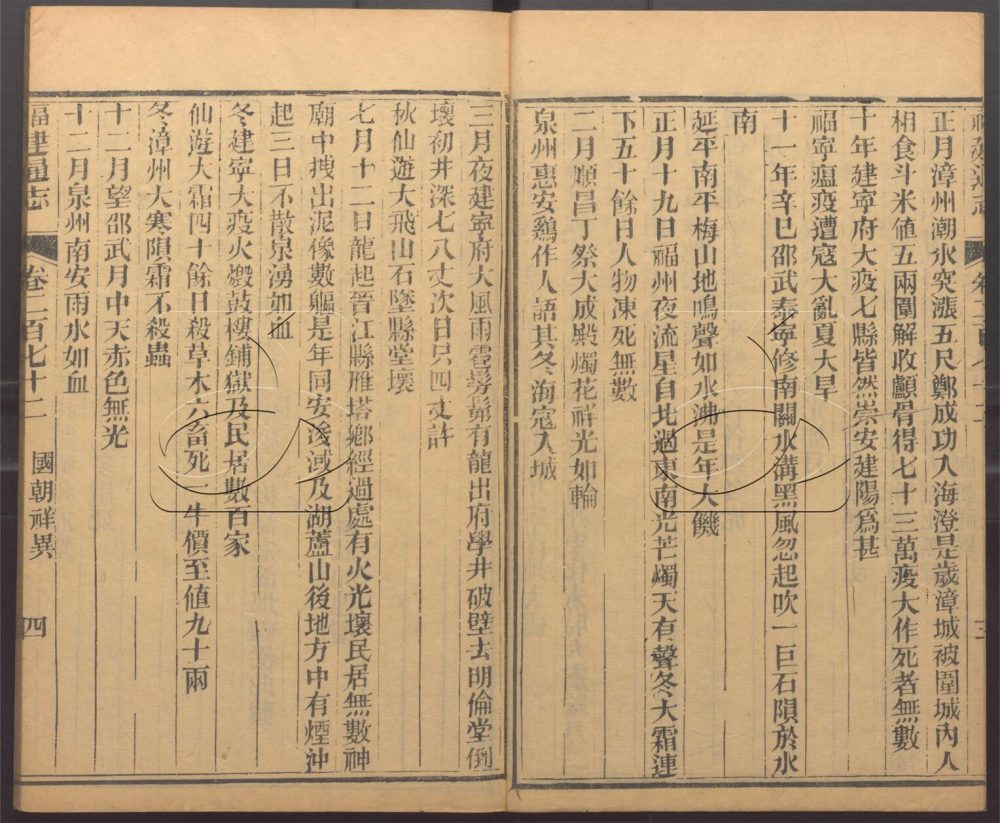 正月漳州潮水突漲五尺鄭成功入海澄是歲漳城被圍城內人
相食斗米値五兩圍解收顱骨得七十三萬疫大作死者無數
十年建寧府大疫七縣皆然崇安建陽爲甚
福寧瘟疫遭寇大亂夏大旱
十一年辛巳邵武泰寧修南關水溝黑風忽起吹一巨石隕於水
南
延平南平梅山地鳴聲如水沸是年大饑
正月十九日福州夜流星自北過東南光芒燭天有聲冬大霜連
下五十餘日人物凍死無數
二月順昌丁祭大成殿燭花祥光如輪
泉州惠安鷄作人語其冬海寇入城
三月夜建寧府大風雨雹髣髴有龍出府學井破壁去明倫堂倒
壞初井深七八丈次日只四丈許
秋仙遊大飛山石墜縣堂壞
七月十二日龍起晉江縣雁塔鄉經過處有火光壞民居無數神
廟中搜出泥像數軀是年同安浚濊及湖蘆山後地方中有煙沖
起三日不散泉湧如血
冬建寧大疫火燬鼓樓鋪獄及民居數百家
仙遊大霜四十餘日殺草木六畜死一牛價至値九十兩
冬漳州大寒隕霜不殺蟲
十二月望邵武月中天赤色無光
十二月泉州南安雨水如血
福建通志
卷二百七十二
國朝祥異
四